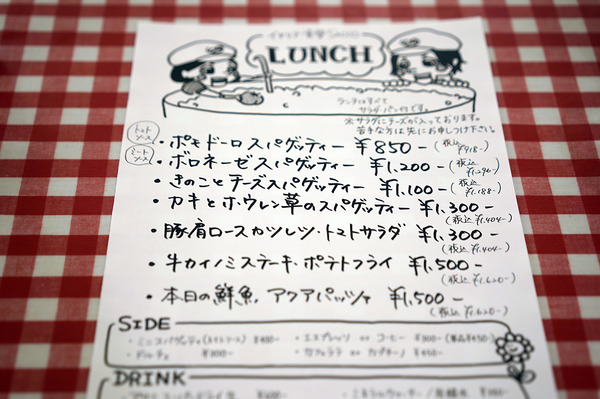 イタリア食堂
LUNCH
ランチはすべて
サラダ・パン付です。
※サラダにチーズが入っております。
苦手な方は先にお申しつけ下さい。
トマトソース
・ポモドーロスパゲッティー ¥850-(税込¥918-)
ミートソース
・ボロネーゼスパゲッティー ¥1,200-(税込¥1,296-)
・きのことチーズスパゲッティー ¥1,100-(税込¥1,188-)
・カキとホウレン草のスパゲッティー ¥1,300-
(税込¥1,404-)
・豚肩ロースカツレツ・トマトサラダ ¥1,300-
(税込¥1,404-)
・牛カイノミステーキ・ポテトフライ ¥1,500-
(税込¥1,620-)
・本日の鮮魚 アクアパッツァ ¥1,500-
(税込¥1,620-)
SIDE
・ミニスパゲッティ(ミートソース) ¥400- ・エスプレッソ or コーヒー ¥300-(単品¥450-)
・ドルチェ ¥300- ・カフェラテ or カプチーノ ¥400-
DRINK